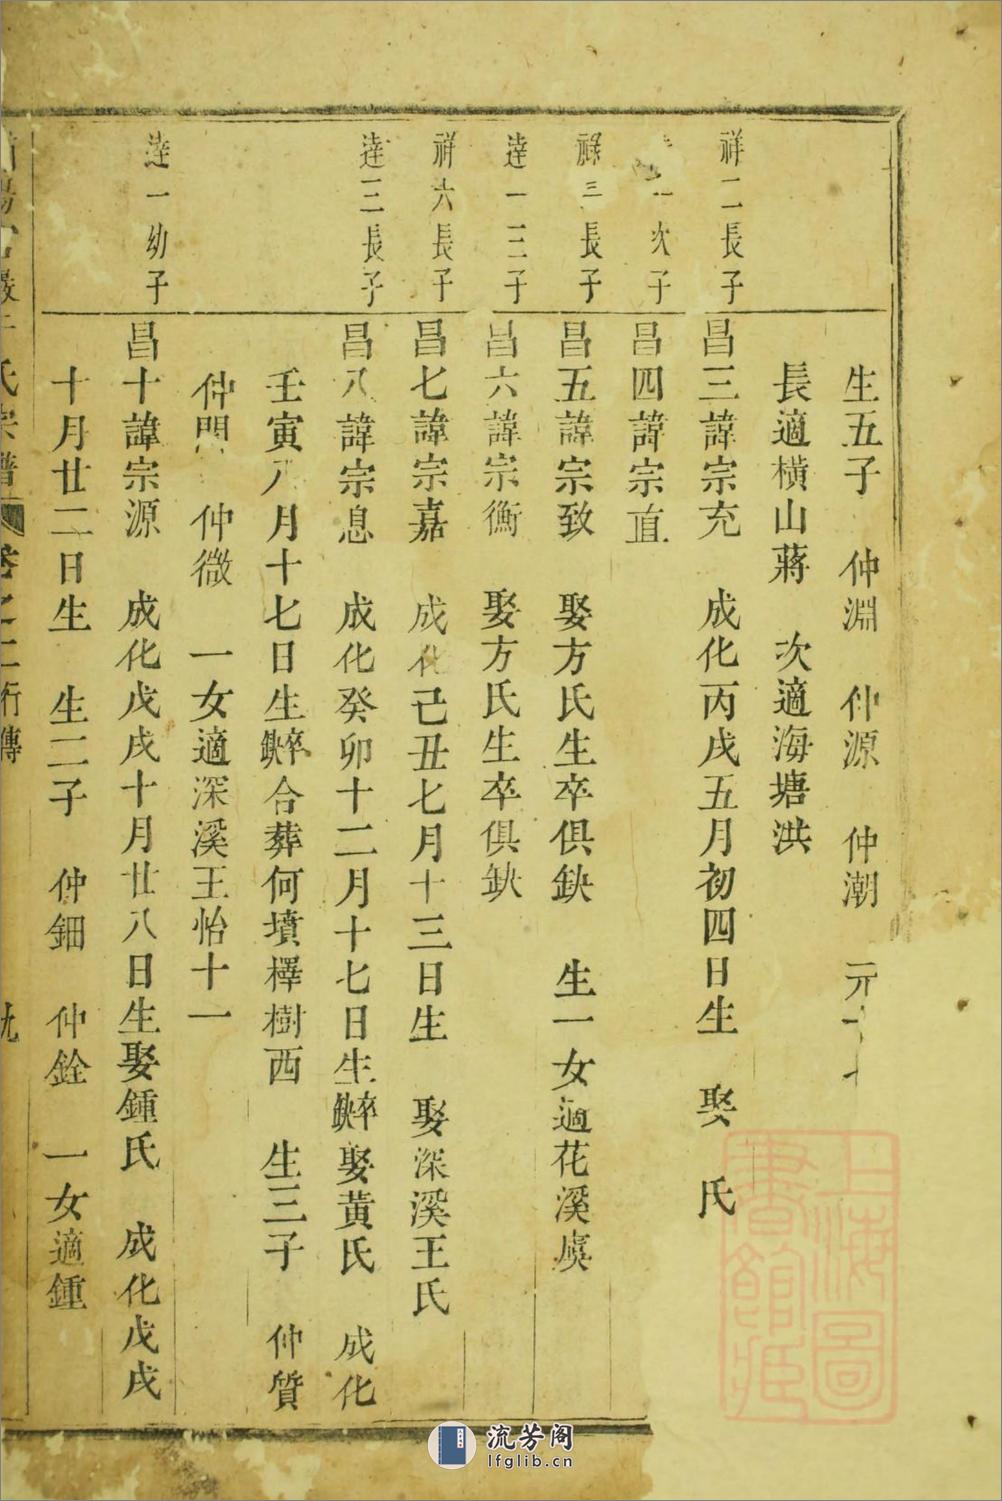 生五子 仲淵 仲源 仲潮 元
長適橫山蔣 次適海塘洪
祥二長子
昌三諱宗充 成化丙戌五月初四日生 娶 氏
一次子
昌四諱宗直
祿三長子
昌五諱宗致 娶方氏生卒俱缺 生一女適花溪虞
達一三子
昌六諱宗衡 娶方氏生卒俱缺
祥六長子
昌七諱宗嘉 成化己丑七月十三日生 娶深溪王氏
達三長子
昌八諱宗息 成化癸卯十二月十七日生卒缺娶黃氏 成化
壬寅八月十七日生卒缺合葬何墳檡樹西 生三子 仲質
仲 仲微 一女適深溪王怡十一
達一幼子
昌十諱宗源 成化戊戌十月廿八日生娶鍾氏 成化戊戌
十月廿二日生 生二子 仲鈿 仲銓 一女適鍾
氏宗譜 卷之二行傳
上海圖書館藏
流芳阁
lfglib.cn